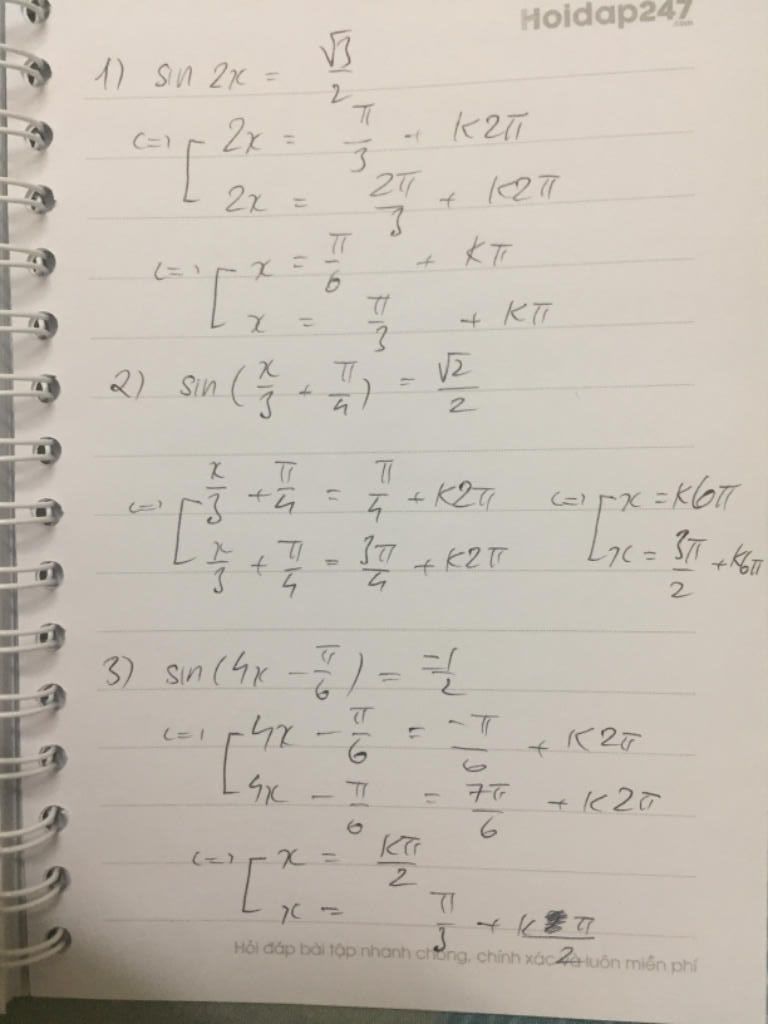 Hoidap247
.com
1) sin 2x = √3/2
<=> [ 2x = π/3 + k2π
2x = 2π/3 + k2π
<=> [ x = π/6 + kπ
x = π/3 + kπ
2) sin(x/3 + π/4) = √2/2
<=> [ x/3 + π/4 = π/4 + k2π <=> [ x = k6π
x/3 + π/4 = 3π/4 + k2π x = 3π/2 + k6π
3) sin(4x - π/6) = -1/2
<=> [ 4x - π/6 = -π/6 + k2π
4x - π/6 = 7π/6 + k2π
<=> [ x = kπ/2
x = π/3 + kπ/2
Hỏi đáp bài tập nhanh chóng, chính xác và luôn miễn phí